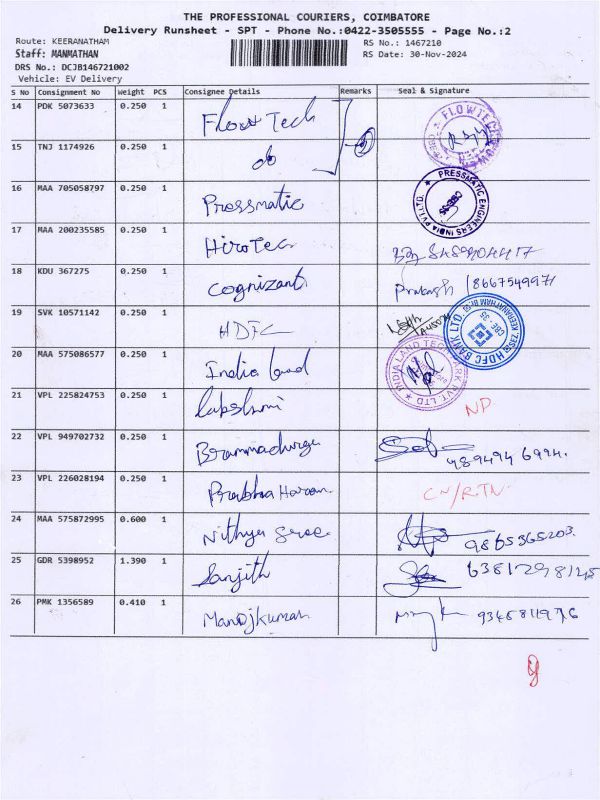 THE PROFESSIONAL COURIERS, COIMBATORE
Delivery Runsheet - SPT - Phone No.:0422-3505555 - Page No.:2
Route: KEERANATHAM RS No.: 1467210
Staff: MANMATHAN RS Date: 30-Nov-2024
DRS No.: DCJB146721002
Vehicle: EV Delivery
S No Consignment No Weight PCS Consignee Details Remarks Seal & Signature
14 PDK 5073633 0.250 1 Flow Tech FLOWTECH
15 TNJ 1174926 0.250 1 do
16 MAA 705058797 0.250 1 Pressmatic PRESSMATIC ENGINEERS INDIA PVT.LTD.
17 MAA 200235585 0.250 1 HiroTec
18 KDU 367275 0.250 1 Cognizant Prakash /8667549971
19 SVK 10571142 0.250 1 HDFC HDFC BANK LTD.
20 MAA 575086577 0.250 1 India Land INDIA LAND TECH PARK PVT LTD
21 VPL 225824753 0.250 1 Lakshmi NP
22 VPL 949702732 0.250 1 Brammadurga
23 VPL 226028194 0.250 1 Prabha Haran CN/RTN.
24 MAA 575872995 0.600 1 Nithya Sree 9865365203
25 GDR 5398952 1.390 1 Sanjith 6381298145
26 PMK 1356589 0.410 1 Manojkumar